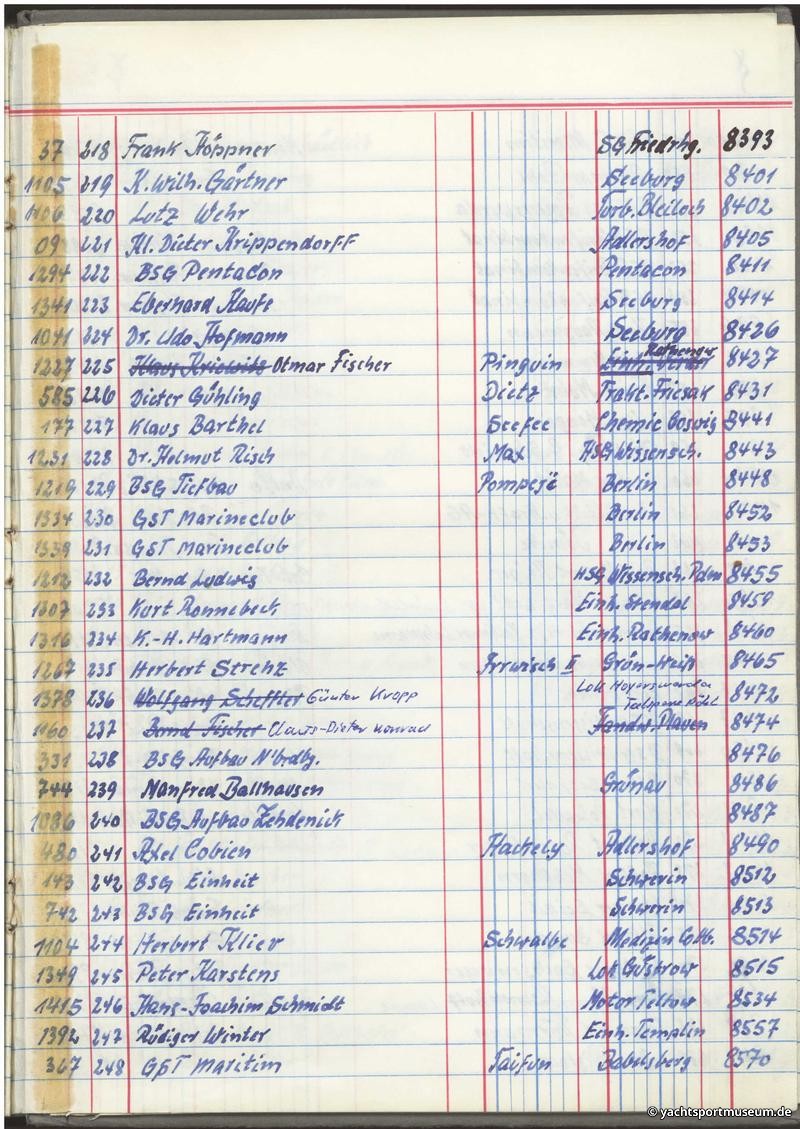 37 218 Frank Höppner SG Friedrhg. 8393
1105 219 K. Wilh. Gärtner Seeburg 8401
1106 220 Lutz Wehr Turb. Bleiloch 8402
09 221 Kl. Dieter Krippendorff Adlershof 8405
1294 222 BSG Pentacon Pentacon 8411
1341 223 Eberhard Haufe Seeburg 8414
1041 224 Dr. Udo Hofmann Seeburg 8426
1227 225 Otmar Fischer Pinguin 8427
585 226 Dieter Gühling Dietz Trakt. Friesak 8431
177 227 Klaus Barthel Seefee Chemie Coswig 8441
1231 228 Dr. Helmut Risch Max HSG Wissensch. 8443
1219 229 BSG Tiefbau Pompejè Berlin 8448
1334 230 GST Marineclub Berlin 8452
1339 231 GST Marineclub Berlin 8453
1212 232 Bernd Ludwig HSG Wissensch. Pdm 8455
1307 233 Kurt Ronnebeck Einh. Stendal 8459
1316 234 K.-H. Hartmann Einh. Rathenow 8460
1267 235 Herbert Strehz Irrwisch II Grün-Weiß 8465
1378 236 Wolfgang Scheffler Günter Kropp Lok Hoyerswerda 8472
1160 237 Bernd Fischer Claus-Dieter Konrad Talsperre Pöhl Fandw. Plauen 8474
331 238 BSG Aufbau N'brdbg. 8476
744 239 Manfred Ballhausen Grünau 8486
1086 240 BSG Aufbau Zehdenick 8487
480 241 Axel Cobien Kachely Adlershof 8490
143 242 BSG Einheit Schwerin 8512
742 243 BSG Einheit Schwerin 8513
1104 244 Herbert Kliev Schwalbe Medizin Cottb. 8514
1349 245 Peter Karstens Lok Güstrow 8515
1415 246 Hans-Joachim Schmidt Motor Teltow 8534
1392 247 Rüdiger Winter Einh. Templin 8557
367 248 GST Maritim Taifun Babelsberg 8570
© yachtsportmuseum.de